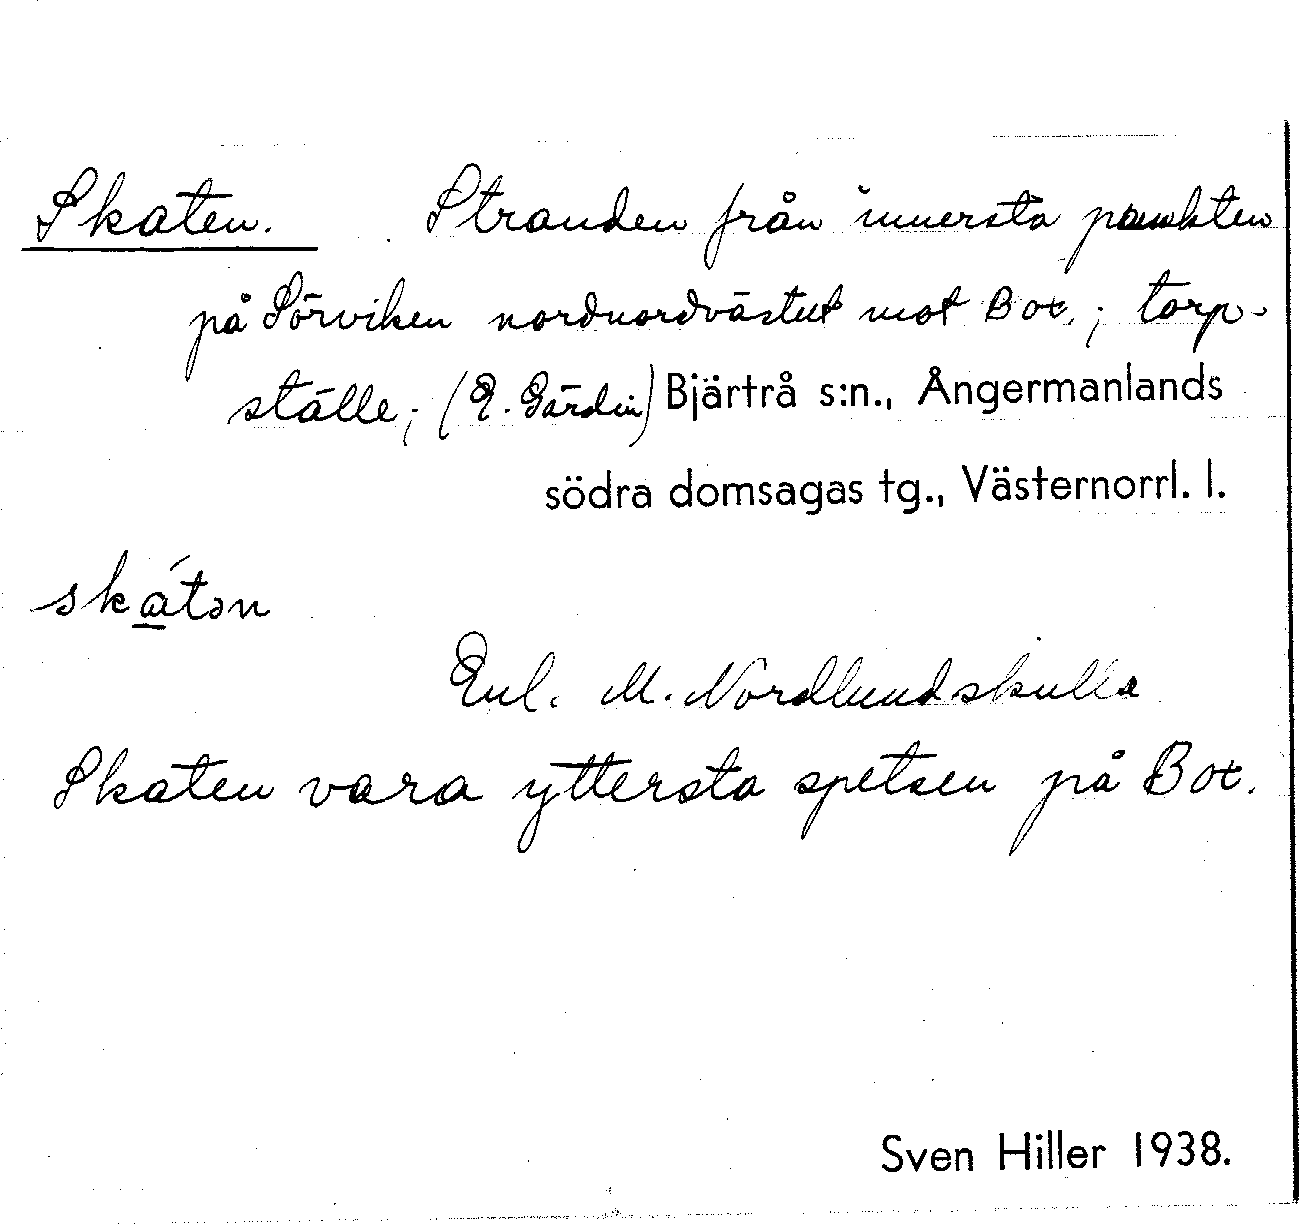 Skaten. Stranden från innersta punkten
på Sörviken nordnordvästut mot Box.; torp-
ställe; (E. Gärdin) Bjärtrå s:n., Ångermanlands
södra domsagas tg., Västernorrl. l.
skátən
Enl. M. Nordlundskulla
Skaten vara yttersta spetsen på Box.
Sven Hiller 1938.